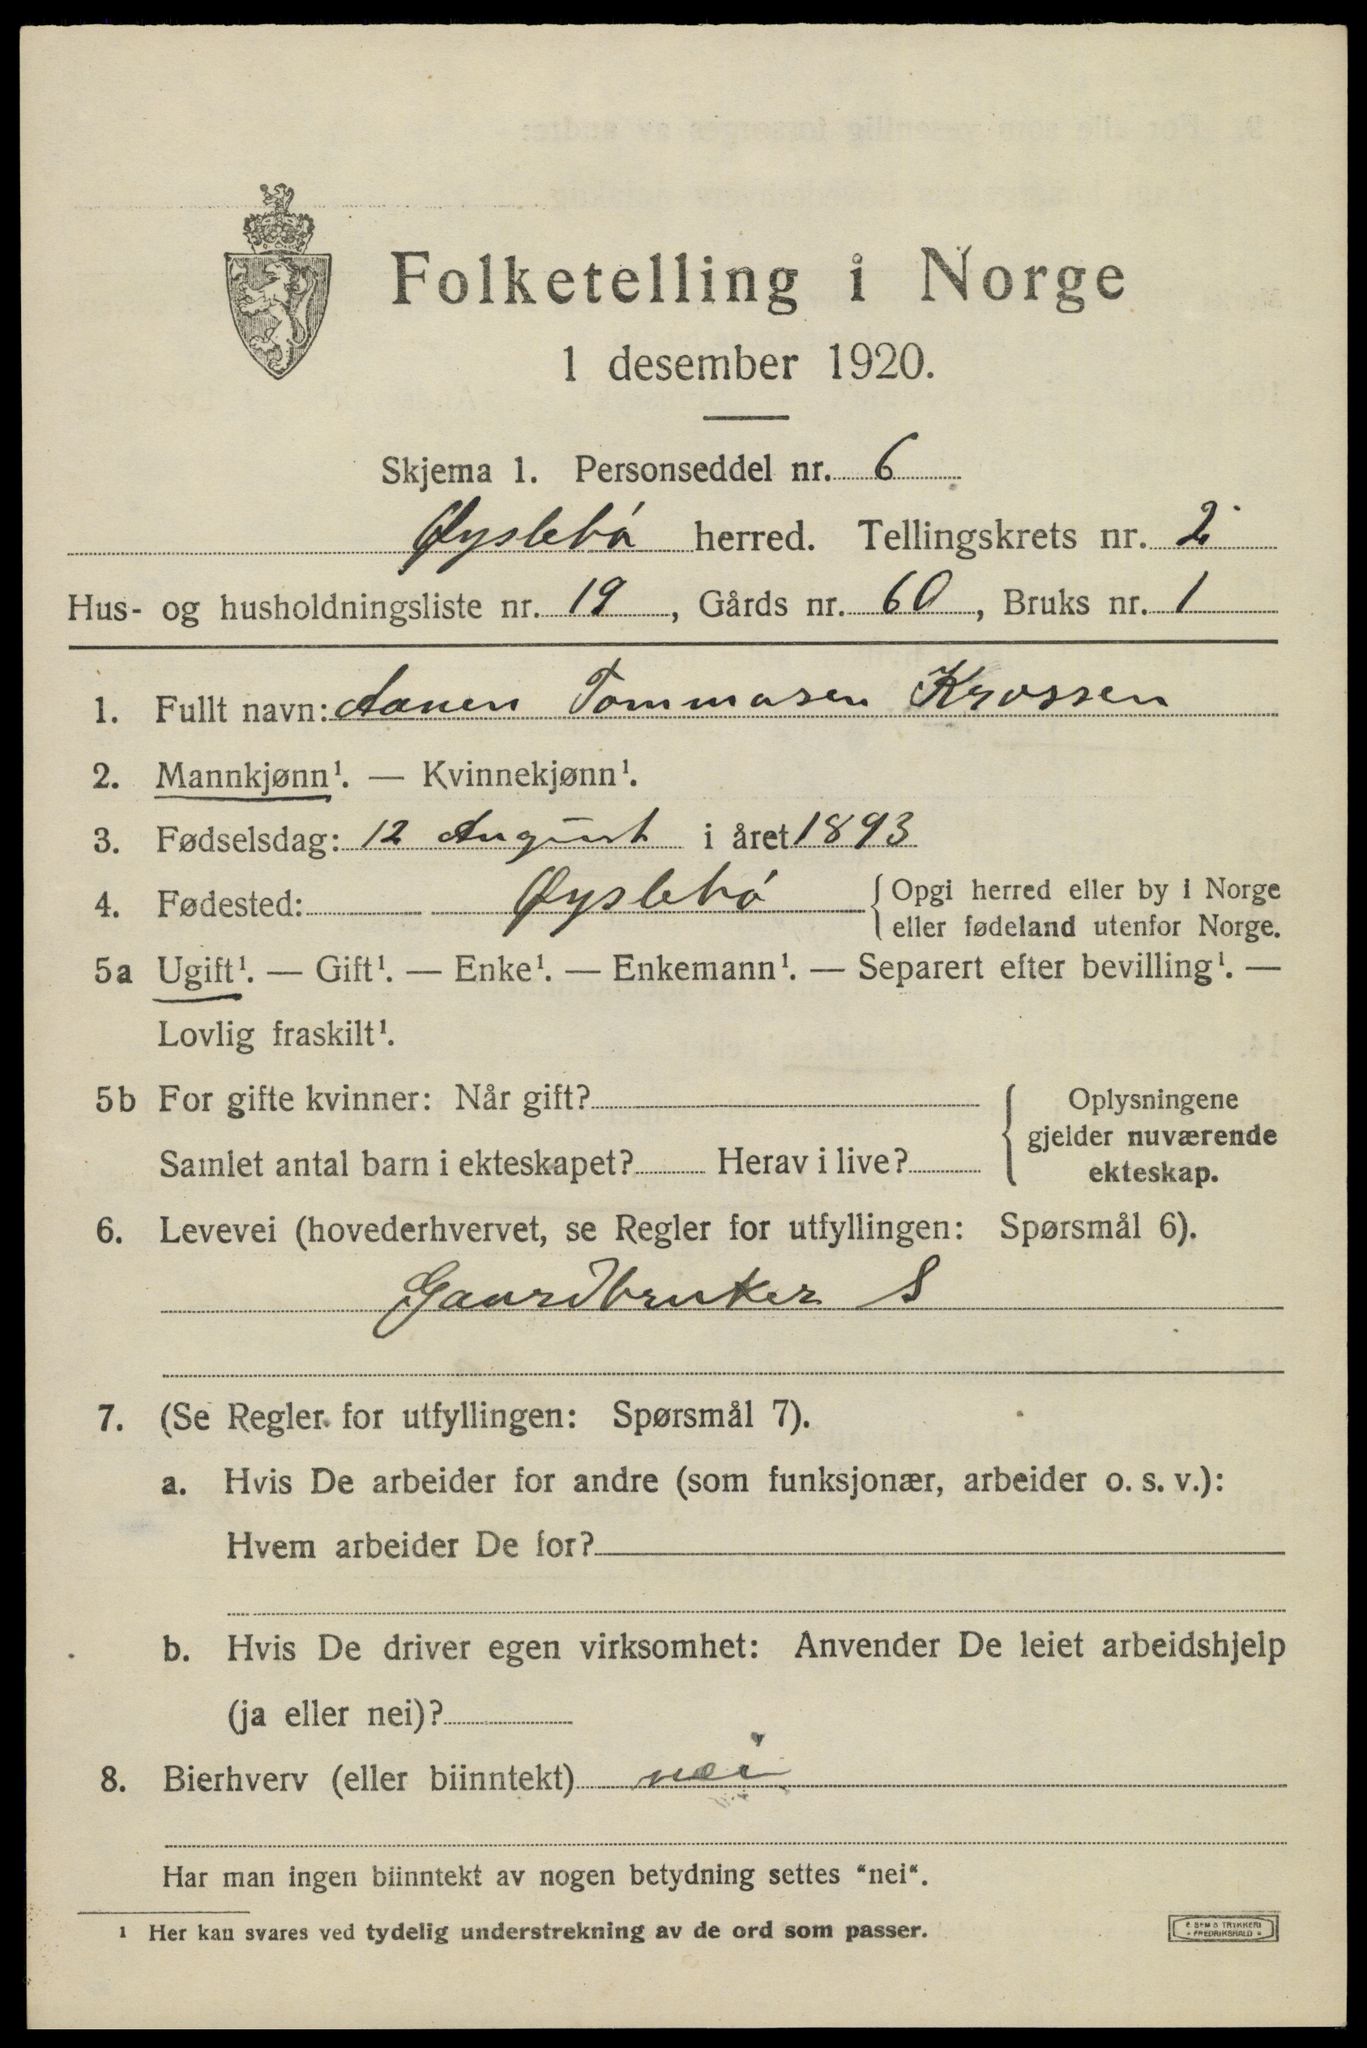 Folketelling i Norge
1 desember 1920.
Skjema 1. Personseddel nr. 6
Øyslebø herred. Tellingskrets nr. 2
Hus- og husholdningsliste nr. 19, Gårds nr. 60, Bruks nr. 1
1. Fullt navn: Aanen Tommasen Krossen
2. Mannkjønn¹. — Kvinnekjønn¹.
3. Fødselsdag: 12 August i året 1893
4. Fødested: Øyslebø { Opgi herred eller by i Norge
eller fødeland utenfor Norge.
5a Ugift¹. — Gift¹. — Enke¹. — Enkemann¹. — Separert efter bevilling¹. —
Lovlig fraskilt¹.
5b For gifte kvinner: Når gift?
Samlet antal barn i ekteskapet? Herav i live?
Oplysningene
gjelder nuværende
ekteskap.
6. Levevei (hovederhvervet, se Regler for utfyllingen: Spørsmål 6).
Gaardbruker S
7. (Se Regler for utfyllingen: Spørsmål 7).
a. Hvis De arbeider for andre (som funksjonær, arbeider o. s. v.):
Hvem arbeider De for?
b. Hvis De driver egen virksomhet: Anvender De leiet arbeidshjelp
(ja eller nei)?
8. Bierhverv (eller biinntekt) nei
Har man ingen biinntekt av nogen betydning settes "nei".
¹ Her kan svares ved tydelig understrekning av de ord som passer.
E. SEM'S TRYKKERI
FREDRIKSHALD